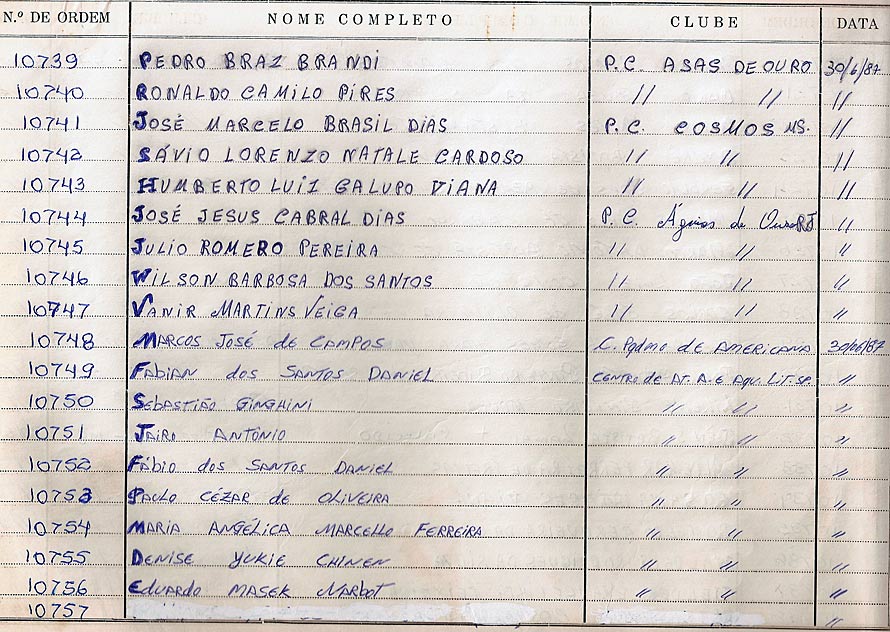 N.º DE ORDEM NOME COMPLETO CLUBE DATA
10739 PEDRO BRAZ BRANDI P.C. ASAS DE OURO 30/6/87
10740 RONALDO CAMILO PIRES // // //
10741 JOSÉ MARCELO BRASIL DIAS P.C. COSMOS MS. //
10742 SÁVIO LORENZO NATALE CARDOSO // // //
10743 HUMBERTO LUIZ GALUPO VIANA // // //
10744 JOSÉ JESUS CABRAL DIAS P.C. Águias de Ouro RJ //
10745 JULIO ROMERO PEREIRA // // //
10746 WILSON BARBOSA DOS SANTOS // // //
10747 VANIR MARTINS VEIGA // // //
10748 MARCOS JOSÉ de CAMPOS C. Pqdmo de AMERICANA 30/06/87
10749 FABIAN dos SANTOS DANIEL CENTRO de AT. A. e Aqu. LIT. SP. //
10750 SEBASTIÃO GINGHINI // // //
10751 JAIRO ANTÔNIO // // //
10752 FÁBIO dos SANTOS DANIEL // // //
10753 PAULO CÉZAR de OLIVEIRA // // //
10754 MARIA ANGÉLICA MARCELLO FERREIRA // // //
10755 DENISE YUKIE CHINEN // // //
10756 EDUARDO MASEK Narbot // // //
10757 //